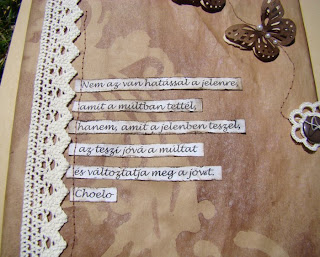 Nem az van hatással a jelenre,
amit a múltban tettél,
hanem, amit a jelenben teszel,
az teszi jóvá a múltat
és változtatja meg a jövőt.
Choelo